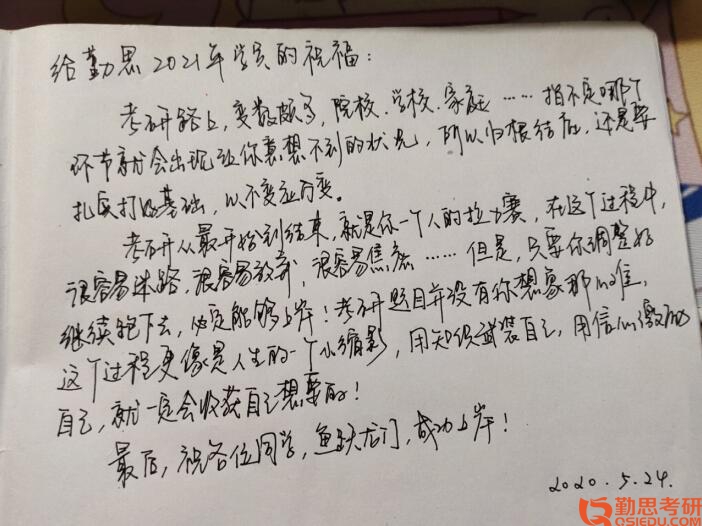 给勤思2021年学员的祝福：
考研路上，变数颇多，院校、学校、家庭……指不定哪个
环节就会出现让你意想不到的状况，所以归根结底，还是要
扎实打好基础，以不变应万变。
考研从最开始到结束，就是你一个人的拉力赛，在这个过程中，
很容易迷路，很容易放弃，很容易焦虑……但是，只要你调整好
继续跑下去，必定能够上岸！考研题目并没有你想象那么难，
这个过程更像是人生的一个小缩影，用知识武装自己，用信心激励
自己，就一定会收获自己想要的！
最后，祝各位同学，鱼跃龙门，成功上岸！
2020.5.24.
勤思考研
QSIEDU.COM